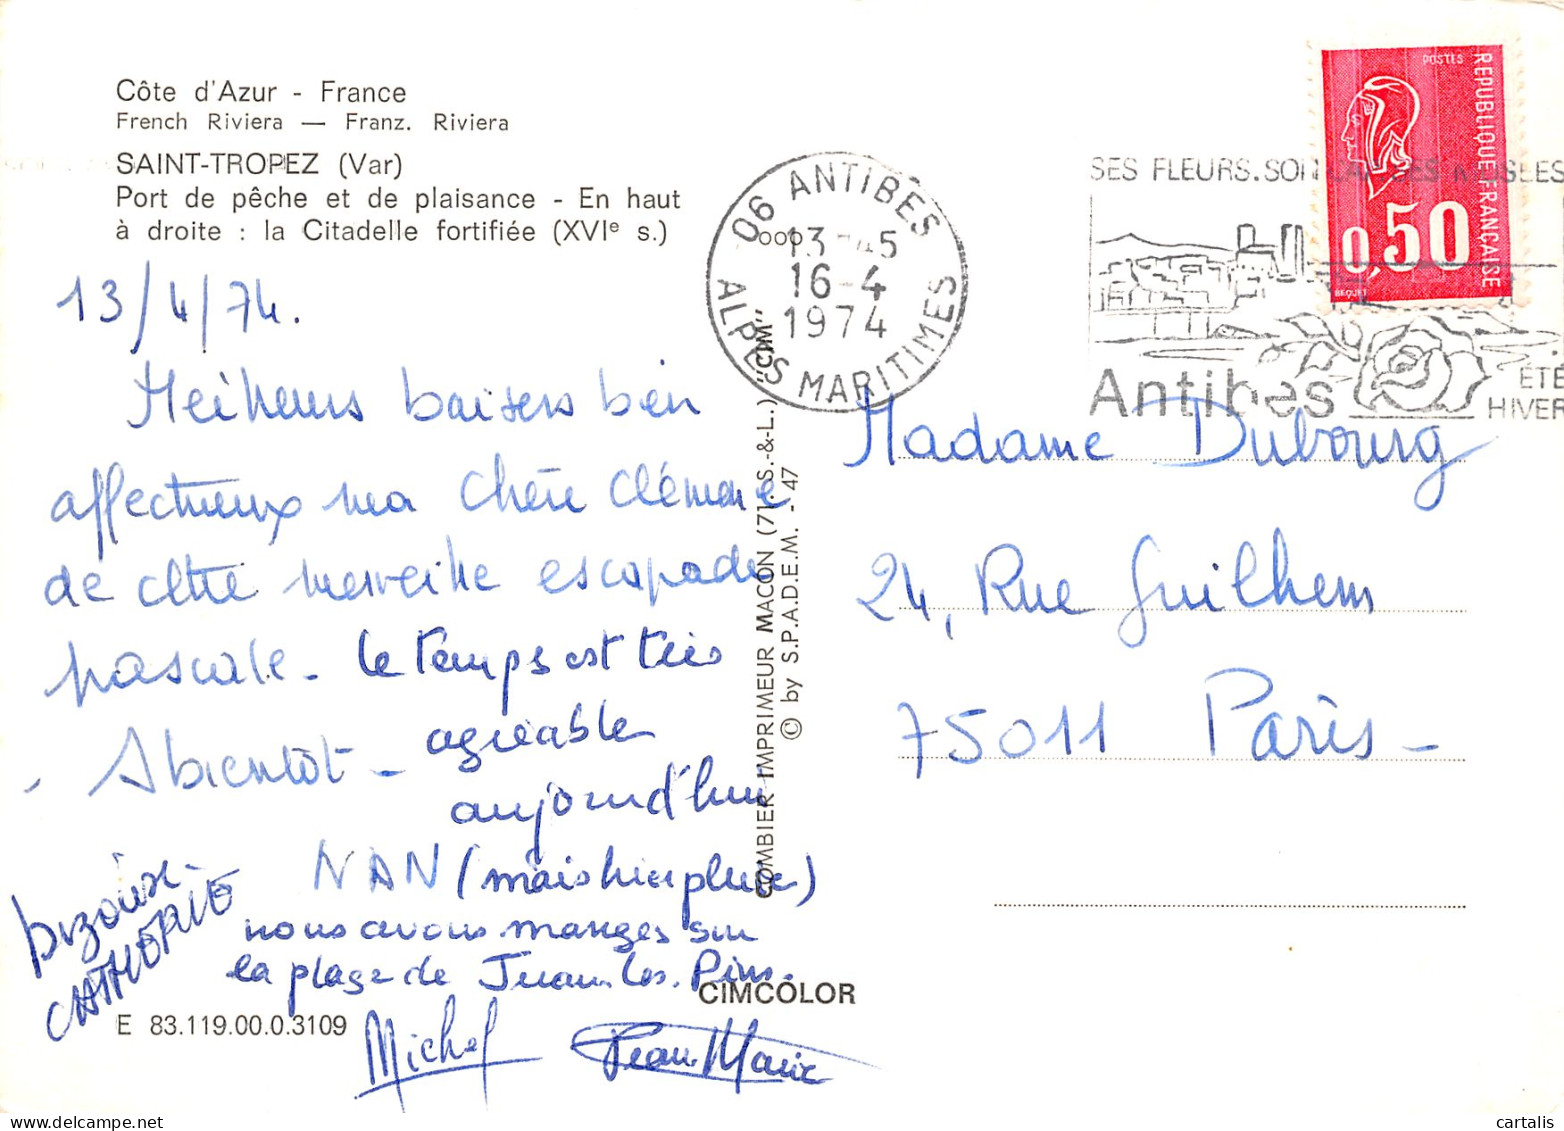 Côte d'Azur - France
French Riviera — Franz. Riviera
SAINT-TROPEZ (Var)
Port de pêche et de plaisance - En haut
à droite : la Citadelle fortifiée (XVIe s.)
13/4/74.
Meilleurs baisers bien
affectueux ma chère Clémence
de cette merveille escapade
pascale. le temps est très
agréable
- A bientôt -
aujourd'hui
NAN (mais hier pluie)
nous avons mangés sur
la plage de Juan. les. Pins.
bizoux -
CATHERIE
Michel
Jean Marie
E 83.119.00.0.3109
CIMCOLOR
COMBIER IMPRIMEUR MACON (71. S.-&-L.) "CIM"
© by S.P.A.D.E.M. - 47
06 ANTIBES
13 - 45
16-4
1974
ALPES MARITIMES
SES FLEURS. SON
Antibes
ÉTÉ
HIVER
POSTES
REPUBLIQUE FRANÇAISE
0,50
BEQUET
Madame Dubourg
24, Rue Guilhem
75011 Paris -
cartalis